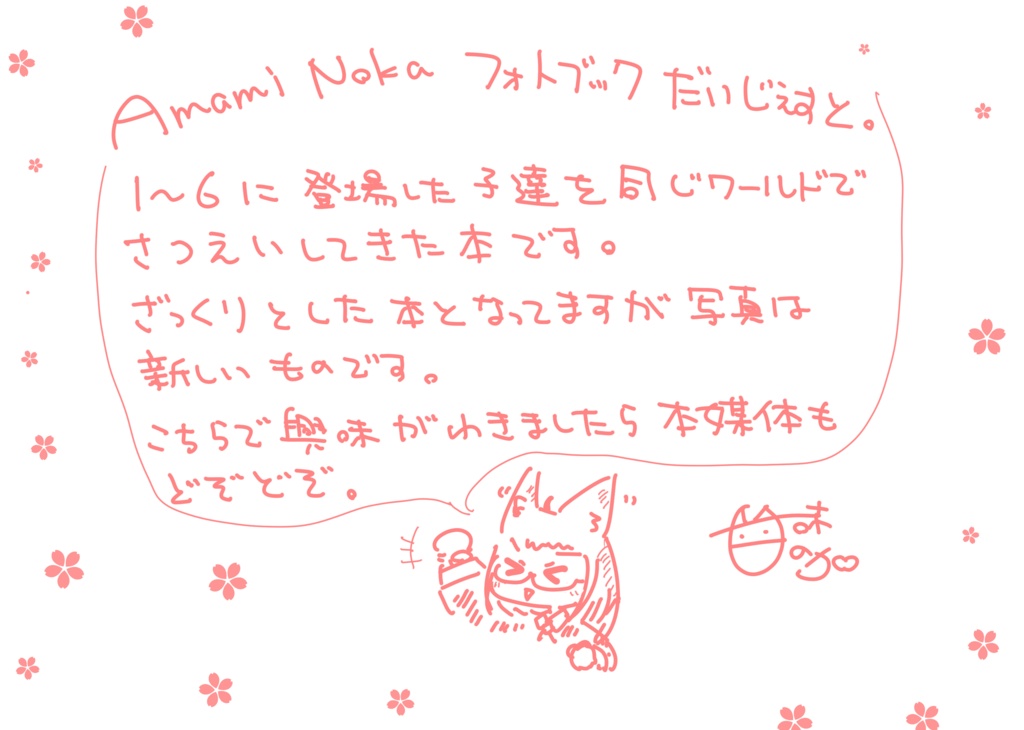 Amami Noka フォトブック だいじぇすと。
1～6に 登場した 子達を 同じワールドで
さつえいしてきた 本です。
ざっくりとした 本となってますが 写真は
新しいものです。
こちらで 興味がわきましたら 本媒体も
どぞどぞ。
味